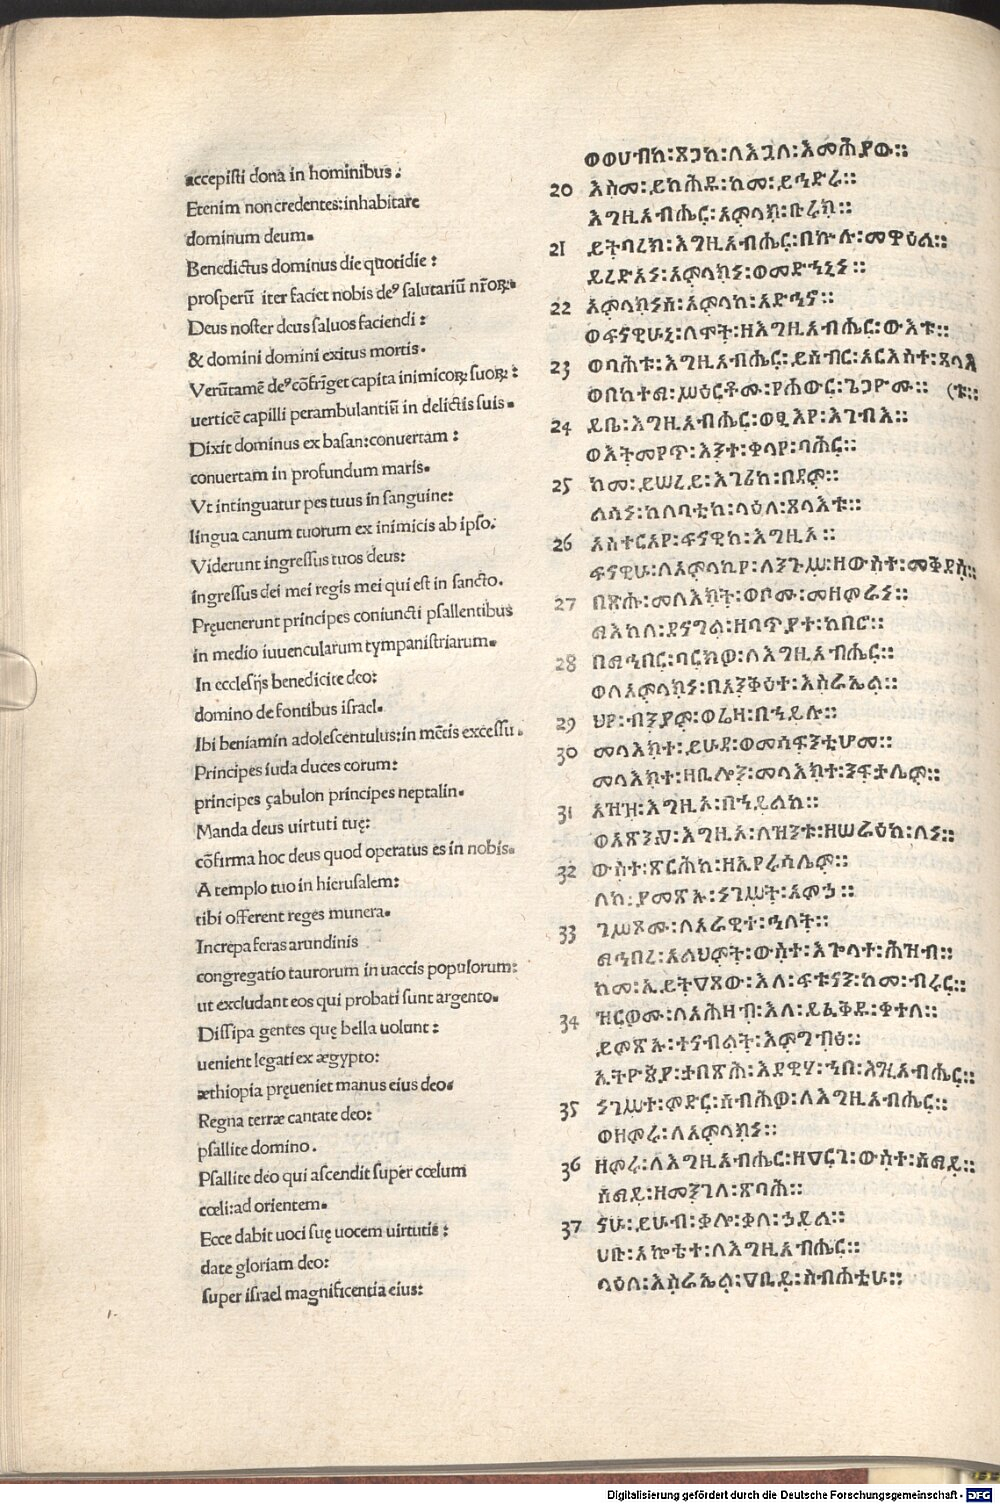 accepisti dona in hominibus:
Etenim non credentes:inhabitare
dominum deum.
Benedictus dominus die quotidie:
prosperū iter faciet nobis deꝰ salutariū nr̄oꝝ.
Deus noster deus saluos faciendi:
& domini domini exitus mortis.
Verūtamē deꝰ cōfrīget capita inimicoꝝ suoꝝ:
uerticē capilli perambulantiū in delictis suis.
Dixit dominus ex basan:conuertam:
conuertam in profundum maris.
Vt intinguatur pes tuus in sanguine:
lingua canum tuorum ex inimicis ab ipso.
Viderunt ingressus tuos deus:
ingressus dei mei regis mei qui est in sancto.
Pręuenerunt principes coniuncti psallentibus
in medio iuuencularum tympanistriarum.
In ecclesijs benedicite deo:
domino de fontibus israel.
Ibi beniamin adolescentulus:in mētis excessu.
Principes iuda duces eorum:
principes çabulon principes neptalin.
Manda deus uirtuti tuę:
cōfirma hoc deus quod operatus es in nobis.
A templo tuo in hierusalem:
tibi offerent reges munera.
Increpa feras arundinis
congregatio taurorum in uaccis populorum:
ut excludant eos qui probati sunt argento.
Dissipa gentes quę bella uolunt:
uenient legati ex ægypto:
æthiopia pręueniet manus eius deo.
Regna terræ cantate deo:
psallite domino.
Psallite deo qui ascendit super cœlum
cœli:ad orientem.
Ecce dabit uoci suę uocem uirtutis:
date gloriam deo:
super israel magnificentia eius:
ወወሀብከ፡ጸጋከ፡ለእጓለ፡እመሕያው።
20 እስመ፡ይክሕዱ፡ከመ፡ይኅድሩ።
እግዚአብሔር፡አምላክ፡ቡሩክ።
21 ይትባረክ፡እግዚአብሔር፡በኵሉ፡መዋዕል።
ይረድአነ፡አምላክነ፡ወመድኀኒነ።
22 አምላክነሰ፡አምላከ፡አድኅኖ።
ወፍናዊሁኒ፡ለሞት፡ዘእግዚአብሔር፡ውእቱ።
23 ወባሕቱ፡እግዚአብሔር፡ይሰብር፡አርእስተ፡ጸላእ
ወበከተማ፡ሥዕርቶሙ፡የሐውር፡ጌጋዮሙ። (ቱ።
24 ይቤ፡እግዚአብሔር፡ወፂእየ፡እገብእ።
ወእትመየጥ፡እንተ፡ቀላየ፡ባሕር።
25 ከመ፡ይሠረይ፡እገሪከ፡በደም።
ልሳነ፡ከለባቲከ፡ላዕለ፡ጸላእቱ።
26 አስተርአየ፡ፍናዊከ፡እግዚአ።
ፍናዊሁ፡ለአምላኪየ፡ለንጉሥ፡ዘውስተ፡መቅደስ።
27 በጽሑ፡መላእክት፡ወቦሙ፡መዘምራነ።
ማእከለ፡ደናግል፡ዘባጥያተ፡ከበሮ።
28 በማኅበር፡ባርክዎ፡ለእግዚአብሔር።
ወለአምላክነ፡በአንቅዕተ፡እስራኤል።
29 ህየ፡ብንያም፡ወሬዛ፡በኀይሉ።
30 መላእክተ፡ይሁዳ፡ወመሳፍንቲሆሙ።
መላእክተ፡ዛቢሎን፡መላእክተ፡ንፍታሌም።
31 አዝዝ፡እግዚኦ፡በኀይልከ።
ወአጽንዖ፡እግዚኦ፡ለዝንቱ፡ዘሠራዕከ፡ለነ።
32 ውስተ፡ጽርሕከ፡ዘኢየሩሳሌም።
ለከ፡ያመጽኡ፡ነገሥት፡አምኃ።
33 ገሥጾሙ፡ለአራዊተ፡ኀለት።
ማኅበረ፡አልህምት፡ውስተ፡እጐላተ፡ሕዝብ።
ከመ፡ኢይትዐጸው፡እለ፡ፍቱናን፡ከመ፡ብሩር።
34 ዝርዎሙ፡ለአሕዛብ፡እለ፡ይፈቅዱ፡ቀተለ።
ይመጽኡ፡ተናብልት፡እምግብፅ።
ኢትዮጵያ፡ታበጽሕ፡እደዊሃ፡ኀበ፡እግዚአብሔር።
35 ነገሥተ፡ምድር፡ሰብሕዎ፡ለእግዚአብሔር።
ወዘምሩ፡ለአምላክነ።
36 ዘምሩ፡ለእግዚአብሔር፡ዘዐርገ፡ውስተ፡ሰማይ።
ሰማይ፡ዘመንገለ፡ጽባሕ።
37 ናሁ፡ይሁብ፡ቃሎ፡ቃለ፡ኃይል።
ሀቡ፡አኰቴተ፡ለእግዚአብሔር።
ላዕለ፡እስራኤል፡ዐቢይ፡ስብሐቲሁ።
Digitalisierung gefördert durch die Deutsche Forschungsgemeinschaft - DFG